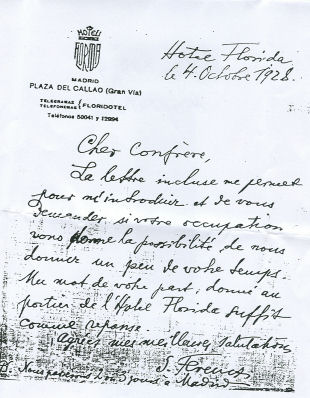 HOTEL
FLORIDA
MADRID
PLAZA DEL CALLAO (Gran Vía)
TELEGRAMAS
TELEFONEMAS } FLORIDOTEL
Teléfonos 50041 y 12994
Hotel Florida
le 4 Octobre 1928.
Cher Confrère,
La lettre incluse me permet
pour m'introduire et de vous
demander si votre occupation
vous donne la possibilité, de nous
donner un peu de votre temps.
Un mot de votre part, donné au
portier de l'Hotel Florida suffit
comme réponse.
Agrées mes meilleures salutations
S.
Nous 2 - 3 jours à Madrid